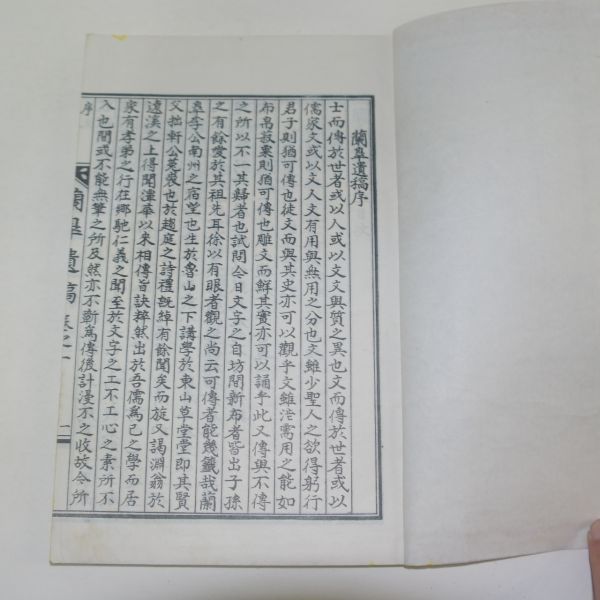 蘭皐遺稿序
士而傳於世者或以人或以文文與質之異也文而傳於世者或以
儒家文或以文人文有用與無用之分也文雖少聖人之欲得躬行
君子則猶可傳也徒文而與其史亦可以觀乎文雖洽需用之能如
布帛菽粟則猶可傳也雕文而鮮其實亦可以誦乎此又傳與不傳
之所以不一其歸者也試問今日文字之自坊間新布者皆出子孫
之有餘愛於其祖先耳徐以有眼者觀之尚云可傳者能幾籤哉蘭
皐李公南州之宿望也生於魯山之下講學於東山草堂堂即其賢
又拙軒公菟裘也於趨庭之詩禮旣綽有餘聞矣而旋又謁淵翁於
遠溪之上得聞滭華以來相傳旨訣粹然出於吾儒爲己之學而居
家有孝弟之行在鄉馳仁義之聞至於文字之工不工心之素所不
入也間或不能無筆之所及然亦不蘄爲傳後計漫不之收故今所
序
蘭皐遺稿 卷之一
一